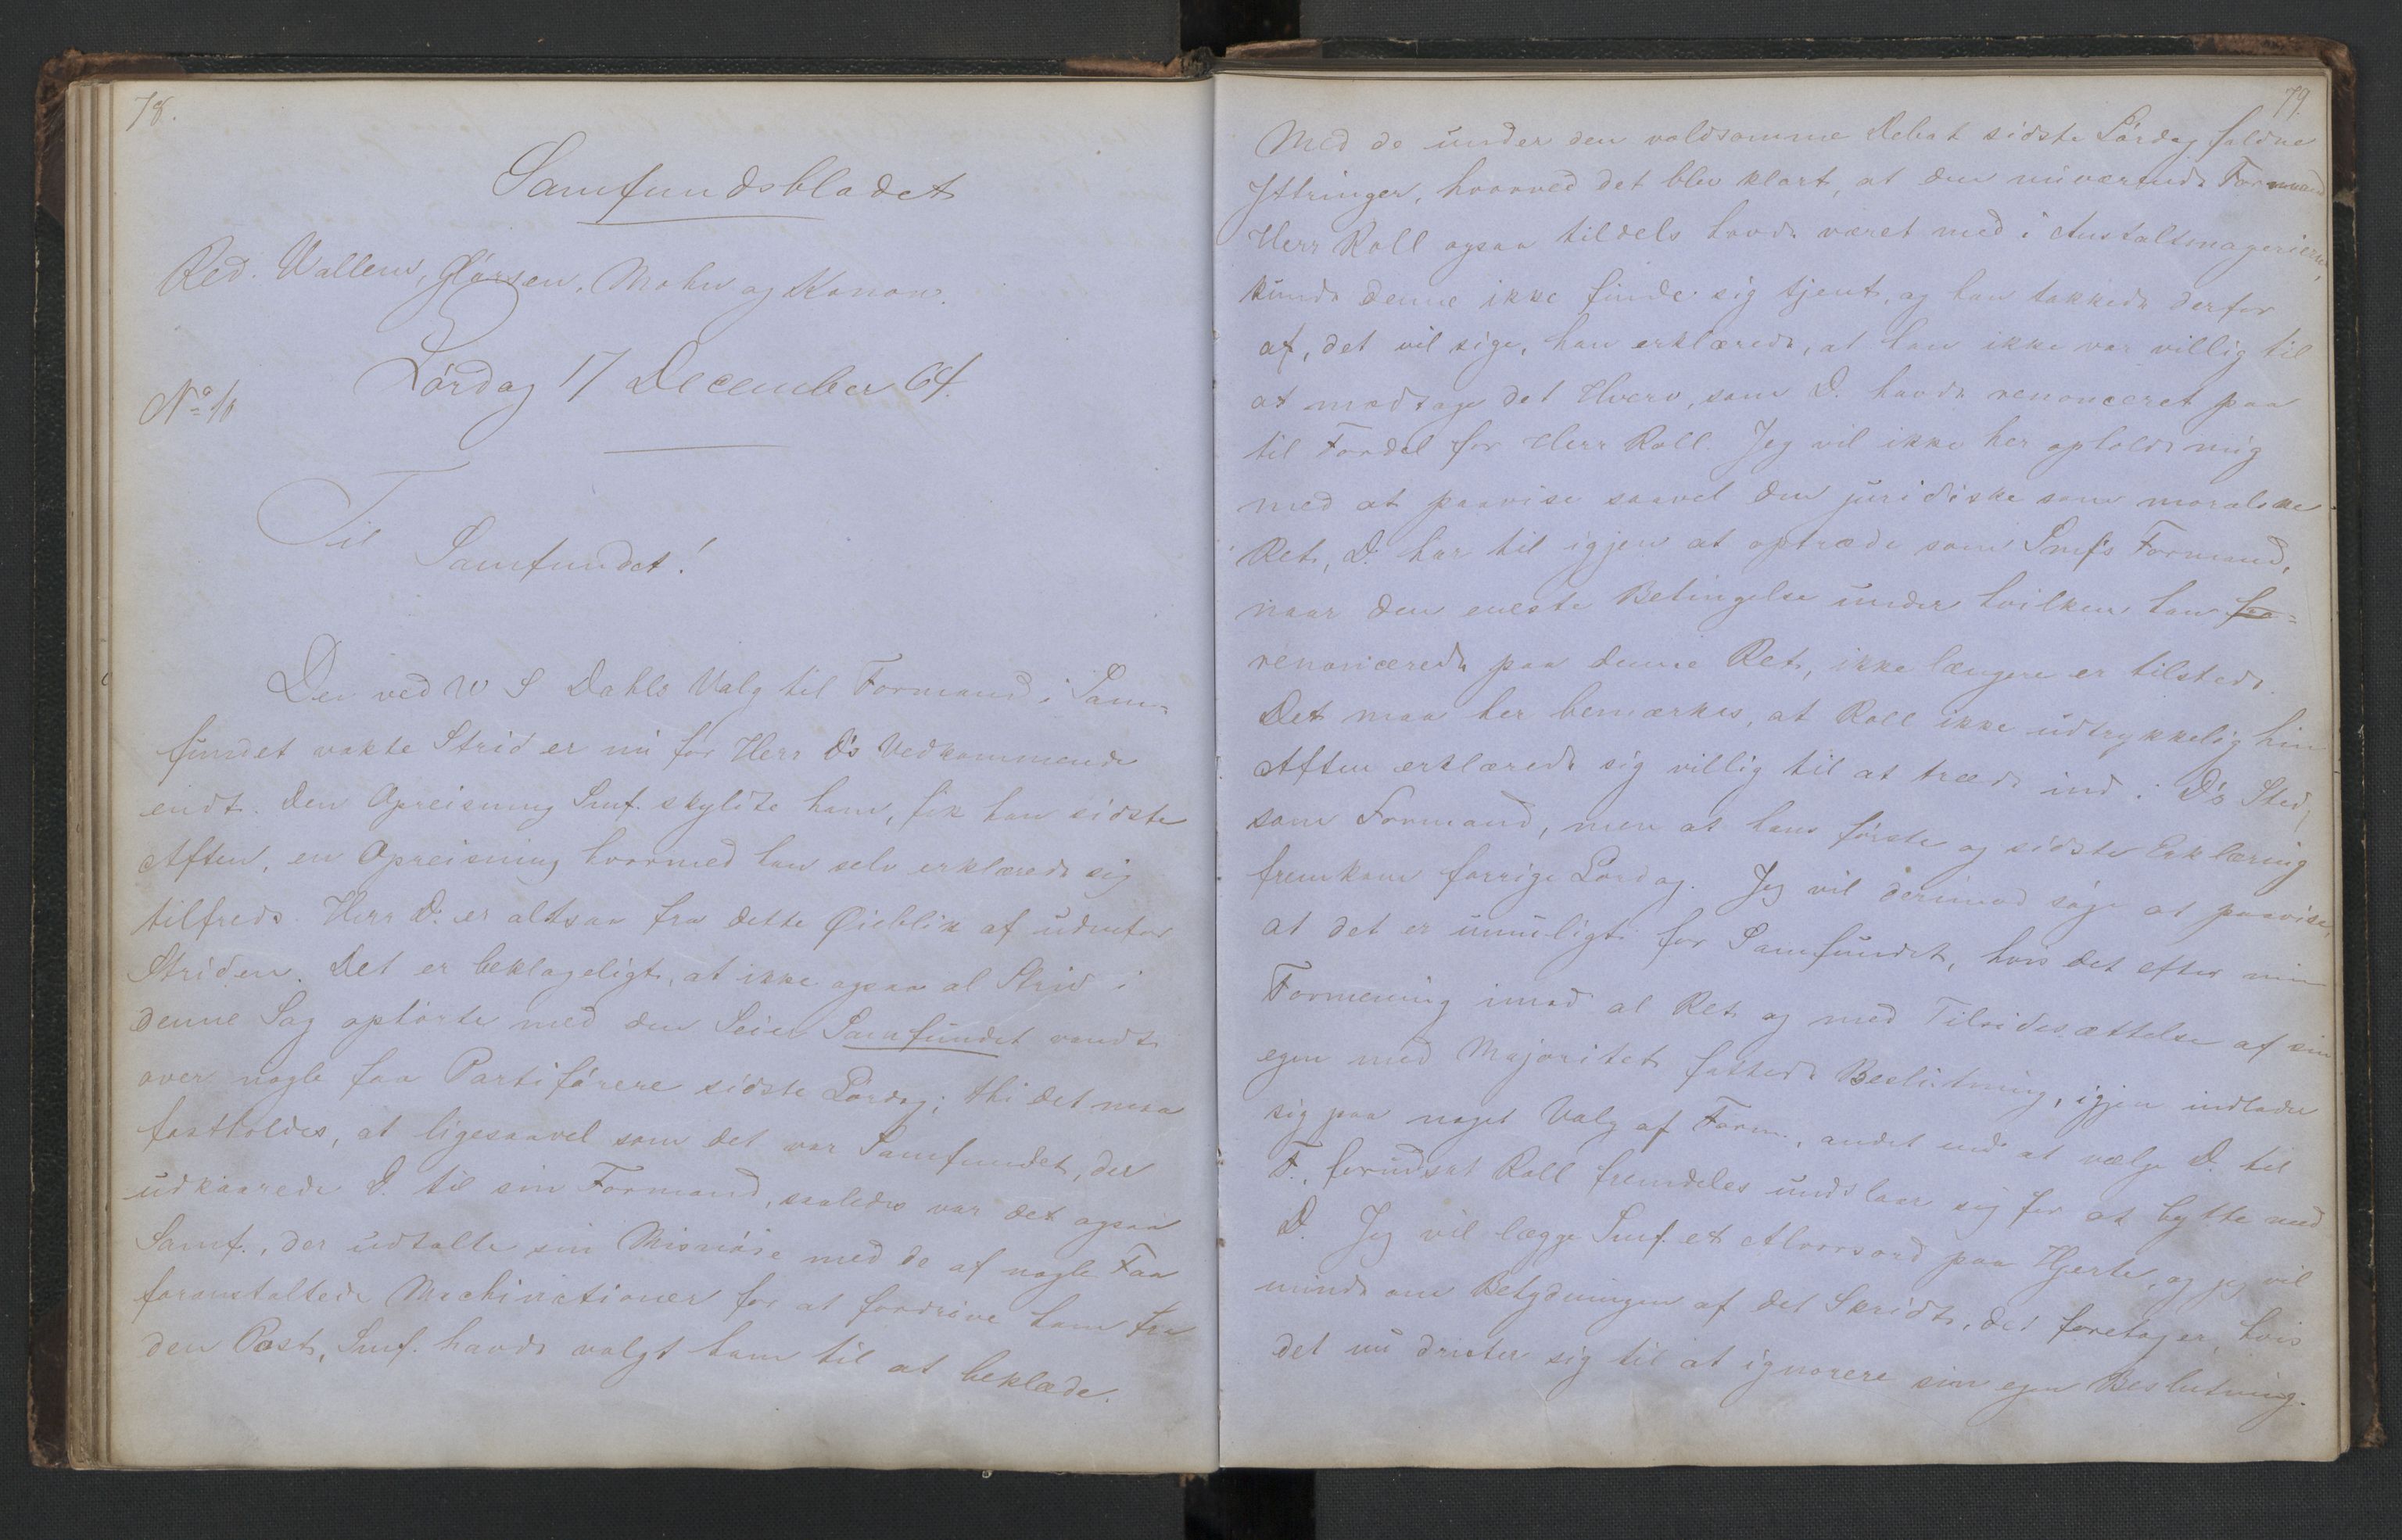 78.
Samfundsbladet
Red. Wallem, Glørsen, Mohn og Konow.
Lørdag 17 December 64.
No 11
Til
Samfundet!
Den ved W S Dahls Valg til Formand i Sam-
fundet vakte Strid er nu for Herr D's Vedkommende
endt. Den Opreisning Smf. skyldte ham, fik han sidste
Aften, en Opreisning hvormed han selv erklærede sig
tilfreds. Herr D. er altsaa fra dette Øieblik af udenfor
Striden. Det er beklageligt, at ikke ogsaa al Strid i
denne Sag ophørte med den Seier Samfundet vandt
over nogle faa Partiførere sidste Lørdag; thi det maa
fastholdes, at ligesaavel som det var Samfundet, der
udkaarede D. til sin Formand, saaledes var det ogsaa
Samf., der udtalte sin Misnøie med de af nogle Faa
foranstaltede Machinationer for at fordrive ham fra
den Post, Smf. havde valgt ham til at beklæde.
79.
Med de under den voldsomme Debat sidste Lørdag faldne
Yttringer, hvorved det blev klart, at den nuværende Formand
Herr Roll ogsaa tildels havde været med i Anstaltmagerierne,
kunde denne ikke finde sig tjent, og han takkede derfor
af, det vil sige, han erklærede, at han ikke var villig til
at modtage det Hverv, som D. havde renonceret paa
til Fordel for Herr Roll. Jeg vil ikke her opholde mig
med at paavise saavel den juridiske som moralske
Ret, D. har til igjen at optræde som Smf's Formand,
naar den eneste Betingelse under hvilken han fra-
renoncerede paa denne Ret, ikke længere er tilstede.
Det maa her bemærkes, at Roll ikke udtrykkelig hin
Aften erklærede sig villig til at træde ind i D's Sted,
som Formand, men at hans første og sidste Erklæring
fremkom forrige Lørdag. Jeg vil derimod søge at paavise,
at det er umuligt for Samfundet, hvis det efter min
Formening imod al Ret og med Tilsidesættelse af sin
egen med Majoritet fattede Beslutning, igjen indlader
sig paa noget Valg af Form., andet end at vælge D. til
F., forudsat Roll fremdeles undslaar sig for at bytte med
D. Jeg vil lægge Smf. et Alvorsord paa Hjerte, og jeg vil
minde om Betydningen af det Skridt, det foretager, hvis
det nu drister sig til at ignorere sin egen Beslutning.